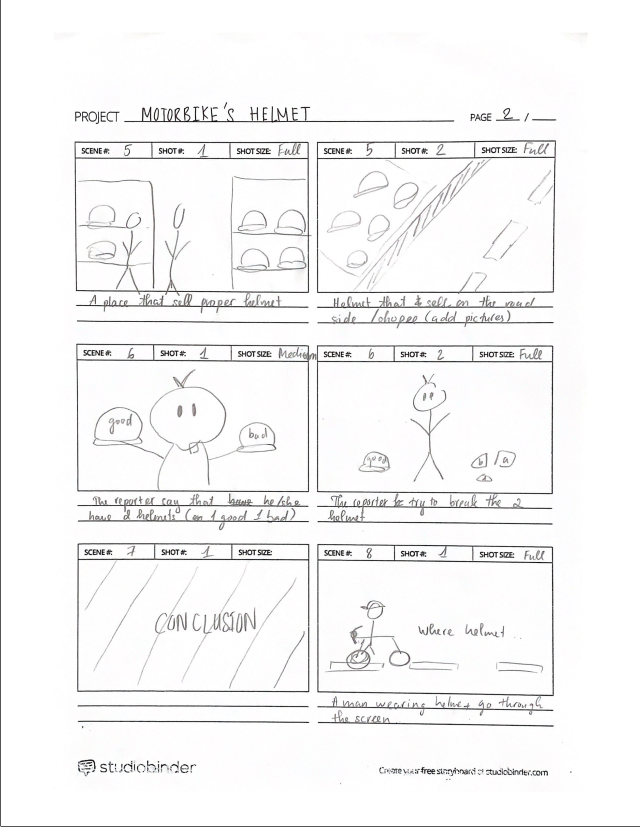 PROJECT MOTORBIKE'S HELMET PAGE 2 /
SCENE#: 5 SHOT#: 1 SHOT SIZE: Full
A place that sell proper helmet
SCENE#: 5 SHOT#: 2 SHOT SIZE: Full
Helmet that sell on the road
side /shopee (add pictures)
SCENE#: 6 SHOT#: 1 SHOT SIZE: Medium
good
bad
The reporter say that he/she
have 2 helmets (1 good 1 bad)
SCENE#: 6 SHOT#: 2 SHOT SIZE: Full
good
b a
The reporter try to break the 2
helmet
SCENE#: 7 SHOT#: 1 SHOT SIZE:
CONCLUSION
SCENE#: 8 SHOT#: 1 SHOT SIZE: Full
Where helmet ..
A man wearing helmet go through
the screen
studiobinder
Create your free storyboard at studiobinder.com